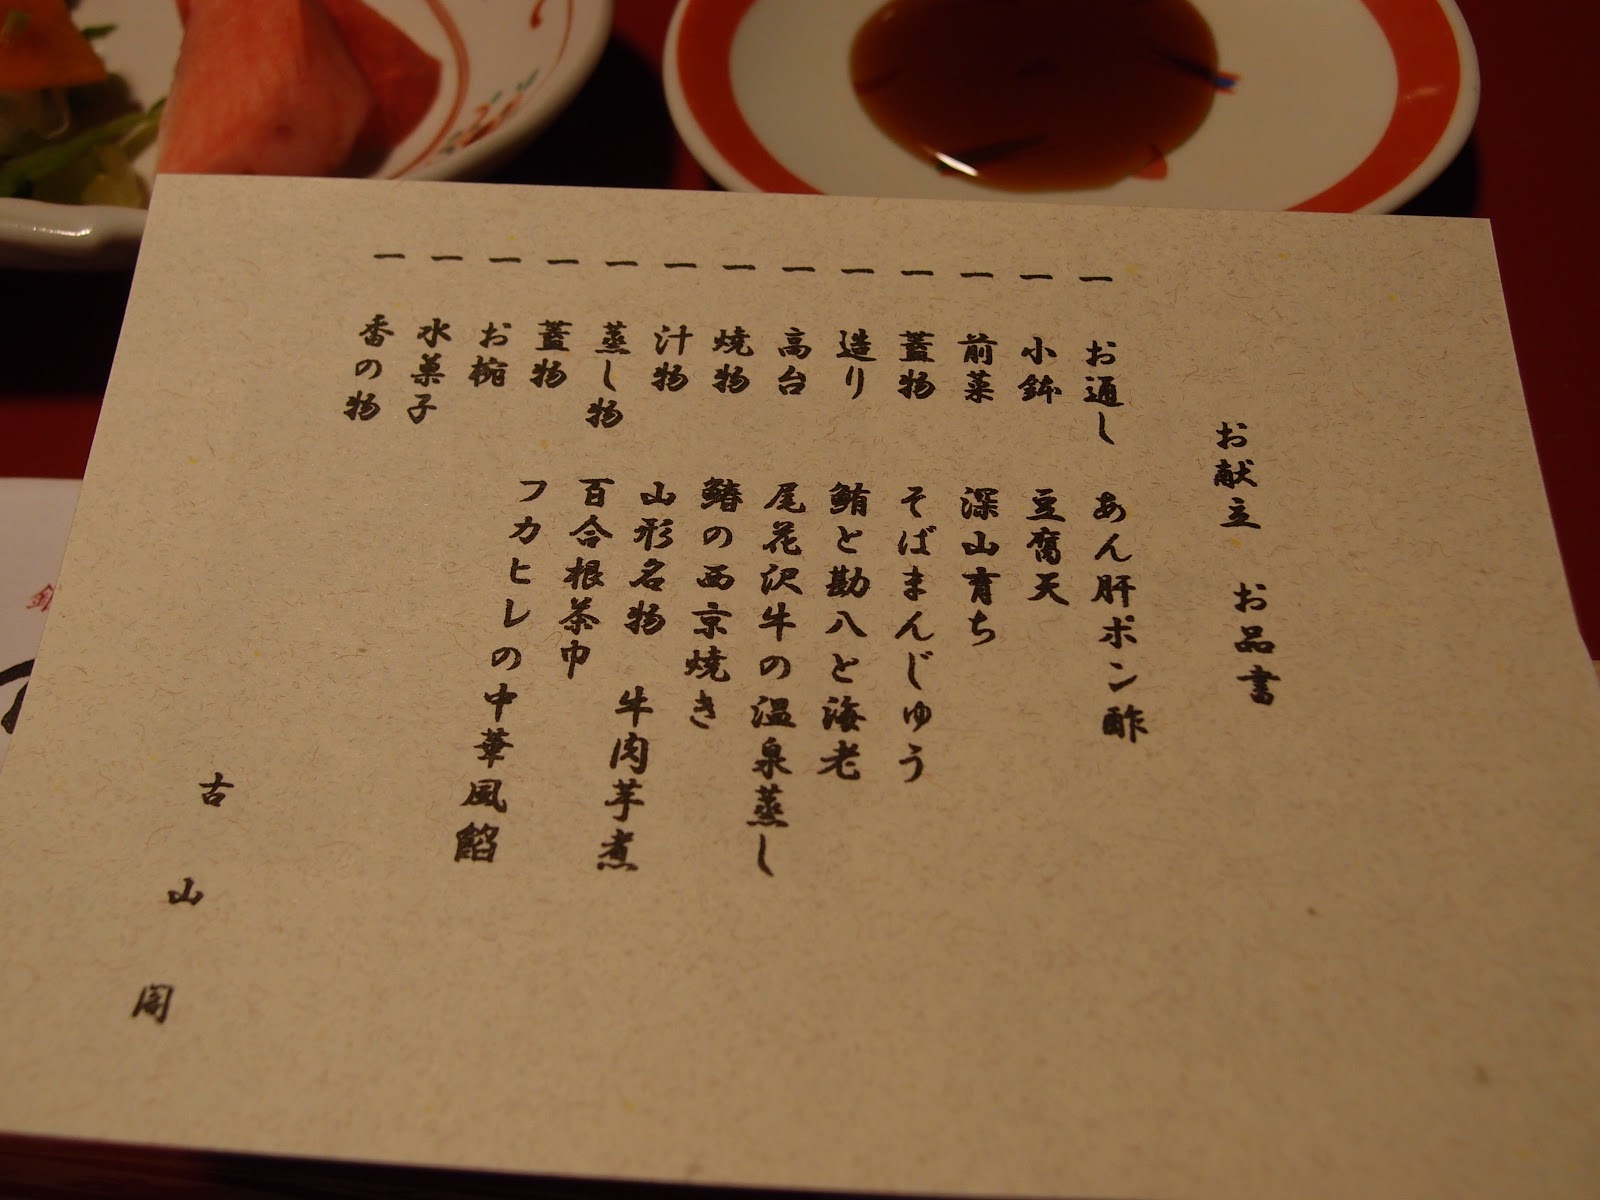 お献立 お品書
一 お通し あん肝ポン酢
一 小鉢 豆腐天
一 前菜 深山育ち
一 蓋物 そばまんじゅう
一 造り 鮪と勘八と海老
一 高台 尾花沢牛の温泉蒸し
一 焼物 鰆の西京焼き
一 汁物 山形名物 牛肉芋煮
一 蒸し物 百合根茶巾
一 蓋物 フカヒレの中華風餡
一 お椀
一 水菓子
一 香の物
古山閣